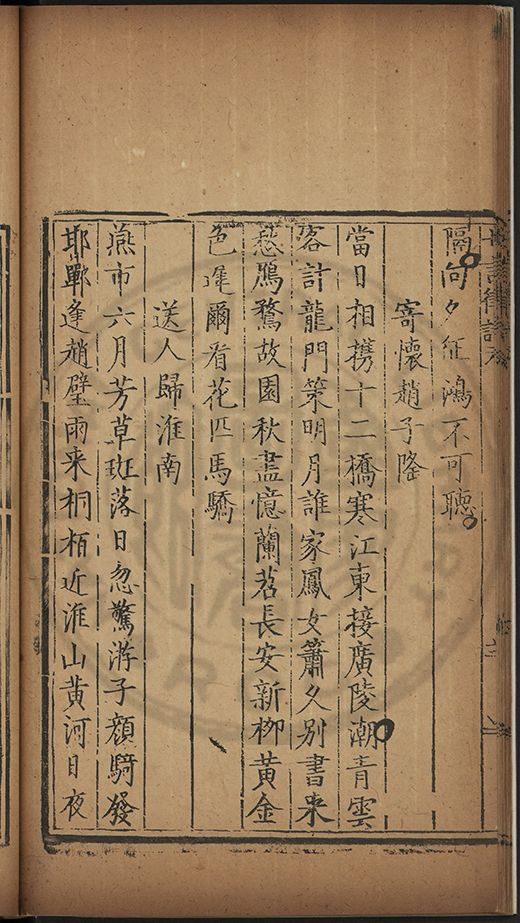 隔向夕征鴻不可聽
寄懷趙子隆
當日相携十二橋寒江東接廣陵潮青雲
客計龍門策明月誰家鳳女簫久別書来
愁鴈鶩故園秋盡憶蘭苕長安新柳黃金
色遲爾看花匹馬驕
送人歸淮南
燕市六月芳草斑落日忽驚游子顏騎發
邯鄲逢趙璧雨来桐栢近淮山黃河日夜